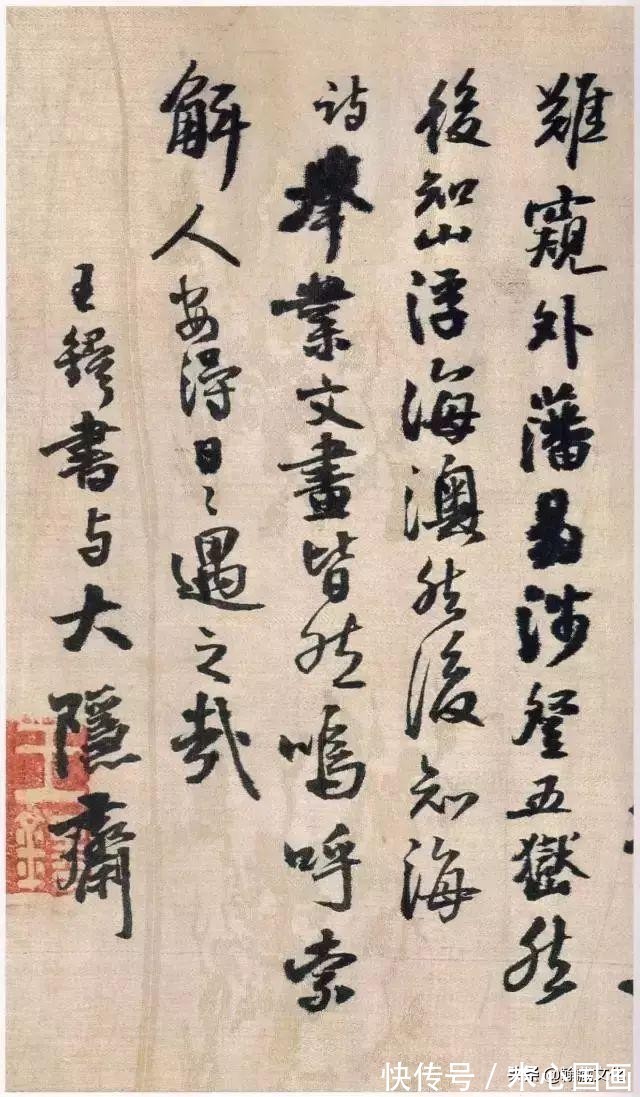 難窺外藩易涉登五嶽然
後知山浮海澳然後知海
詩舉業文畫皆然嗚呼索
解人安得日〻遇之哉
王鐸書与大隱齋
快传号／水心国画